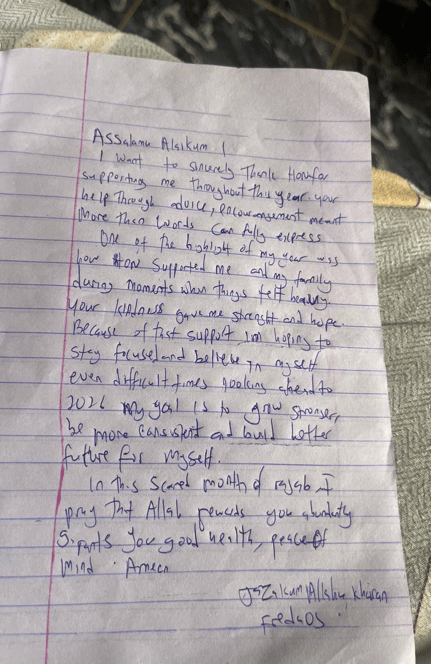 Assalamu Alaikum !
I want to sincerely Thank Han for
supporting me throughout this year your
help Through advice, encouragement meant
More then words can fully express
One of the highlight of my year was
how Han supported me and my family
during moments when things felt heavy
Your kindness gave me strength and hope.
Because of that support Im hoping to
stay focused and believe in myself
even difficult times looking ahead to
2026 My goal is to grow stronger,
be more consistent and build better
future for myself.
In this Scared month of rajab I
pray that Allah rewards you abundantly
grants you good health, peace of
Mind . Ameen
Jazakum Allahu khairan